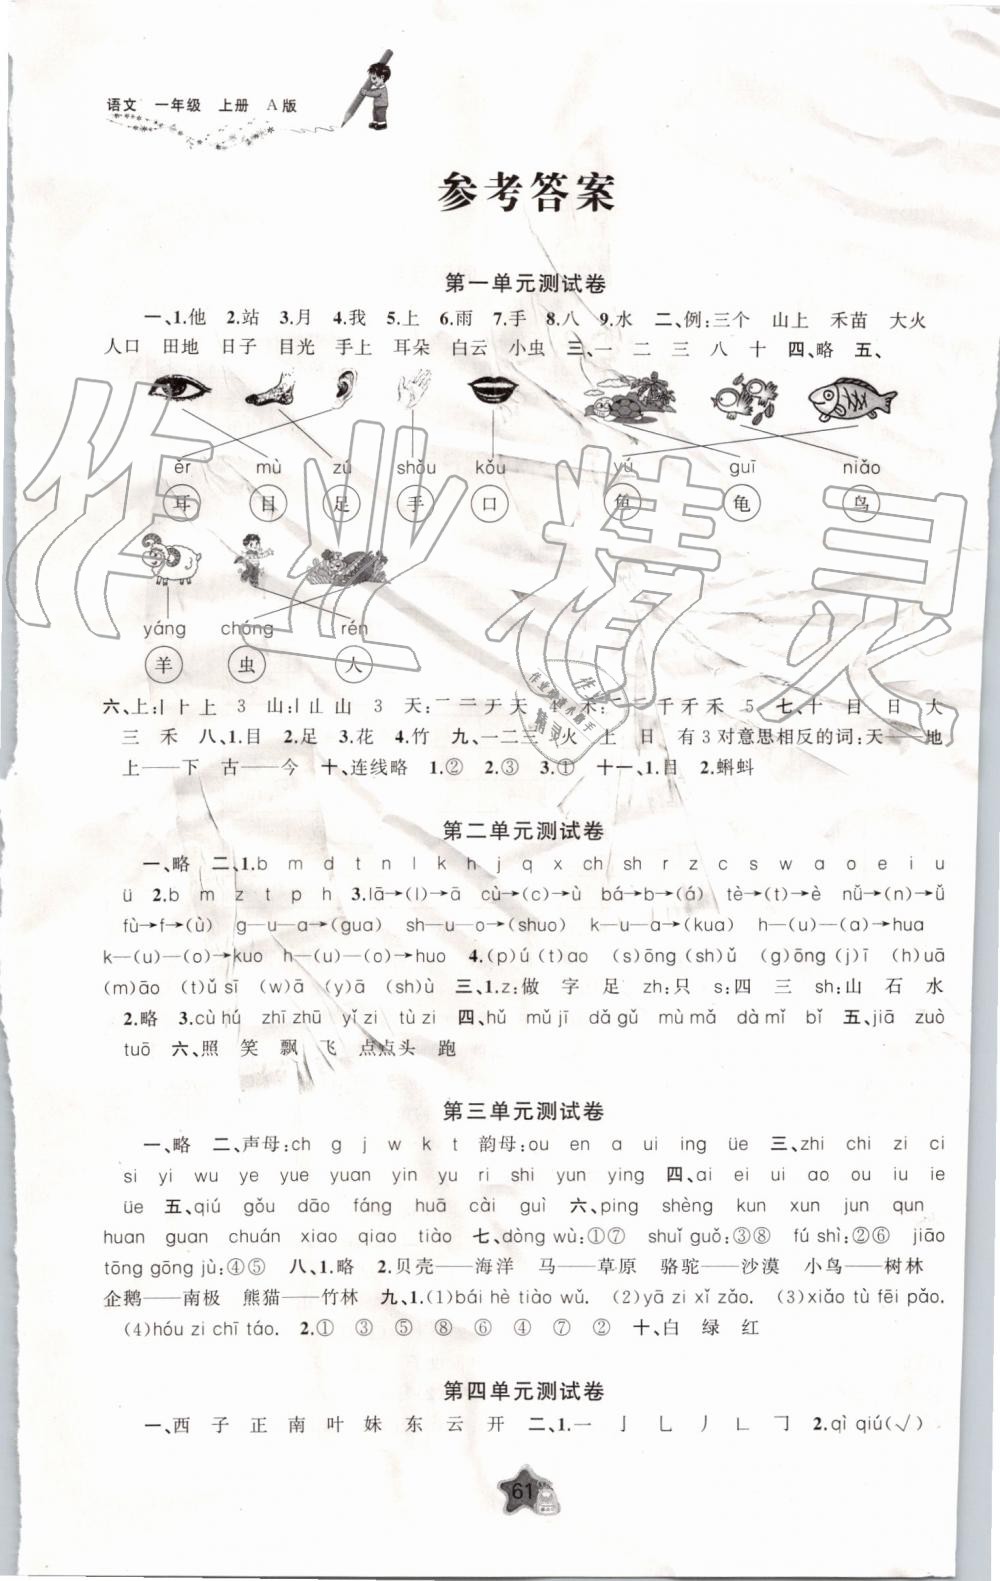 语文 一年级 上册 A版
参考答案
第一单元测试卷
一、1.他 2.站 3.月 4.我 5.上 6.雨 7.手 8.八 9.水 二、例:三个 山上 禾苗 大火
人口 田地 日子 目光 手上 耳朵 白云 小虫 三、一 二 三 八 十 四、略 五、
ěr mù zú shǒu kǒu yú guī niǎo
耳 目 足 手 口 鱼 龟 鸟
yáng chóng rén
羊 虫 人
六、上:丨 ⺊ 上 3 山:丨 山 山 3 天:一 二 于 天 4 禾: 千 禾 禾 5 七、十 目 日 大
三 禾 八、1.目 2.足 3.花 4.竹 九、一二三 火 上 日 有3对意思相反的词:天——地
上——下 古——今 十、连线略 1.② 2.③ 3.① 十一、1.目 2.蝌蚪
第二单元测试卷
一、略 二、1.b m d t n l k h j q x ch sh r z c s w a o e i u
ü 2.b m z t p h 3.lā→(l)→ā cù→(c)→ù bá→b→(á) tè→(t)→è nǚ→(n)→ǚ
fù→f→(ù) g—u—a→(gua) sh—u—o→(shuo) k—u—a→(kua) h—(u)—a→hua
k—(u)—(o)→kuo h—(u)—(o)→huo 4.(p)ú (t)ao (s)ōng (sh)ǔ (g)ōng (j) (h)uā
(m)āo (t)ǔ sī (w)ā (y)ā (sh)ù 三、1.z:做 字 足 zh:只 s:四 三 sh:山 石 水
2.略 3.cù hú zhī zhū yǐ zi tù zi 四、hǔ mǔ jī dǎ gǔ mù mǎ dà mǐ bǐ 五、jiā zuò
tuō 六、照 笑 飘 飞 点点头 跑
第三单元测试卷
一、略 二、声母:ch g j w k t 韵母:ou en a ui ing üe 三、zhi chi zi ci
si yi wu ye yue yuan yin yu ri shi yun ying 四、ai ei ui ao ou iu ie
üe 五、qiú gǒu dāo fáng huā cài guì 六、ping shèng kun xun jun qun
huan guan chuán xiao qiao tiào 七、dòng wù:①⑦ shuǐ guǒ:③⑧ fú shì:②⑥ jiāo
tōng gōng jù:④⑤ 八、1.略 2.贝壳——海洋 马——草原 骆驼——沙漠 小鸟——树林
企鹅——南极 熊猫——竹林 九、1.(1)bái hè tiào wǔ. (2)yā zi xǐ zǎo. (3)xiǎo tù fēi pǎo.
(4)hóu zi chī táo. 2.① ③ ⑤ ⑧ ⑥ ④ ⑦ ② 十、白 绿 红
第四单元测试卷
一、西 子 正 南 叶 妹 东 云 开 二、1.一 亅 乚 丿 ㄴ 𠃌 2.qì qiú(√)
61